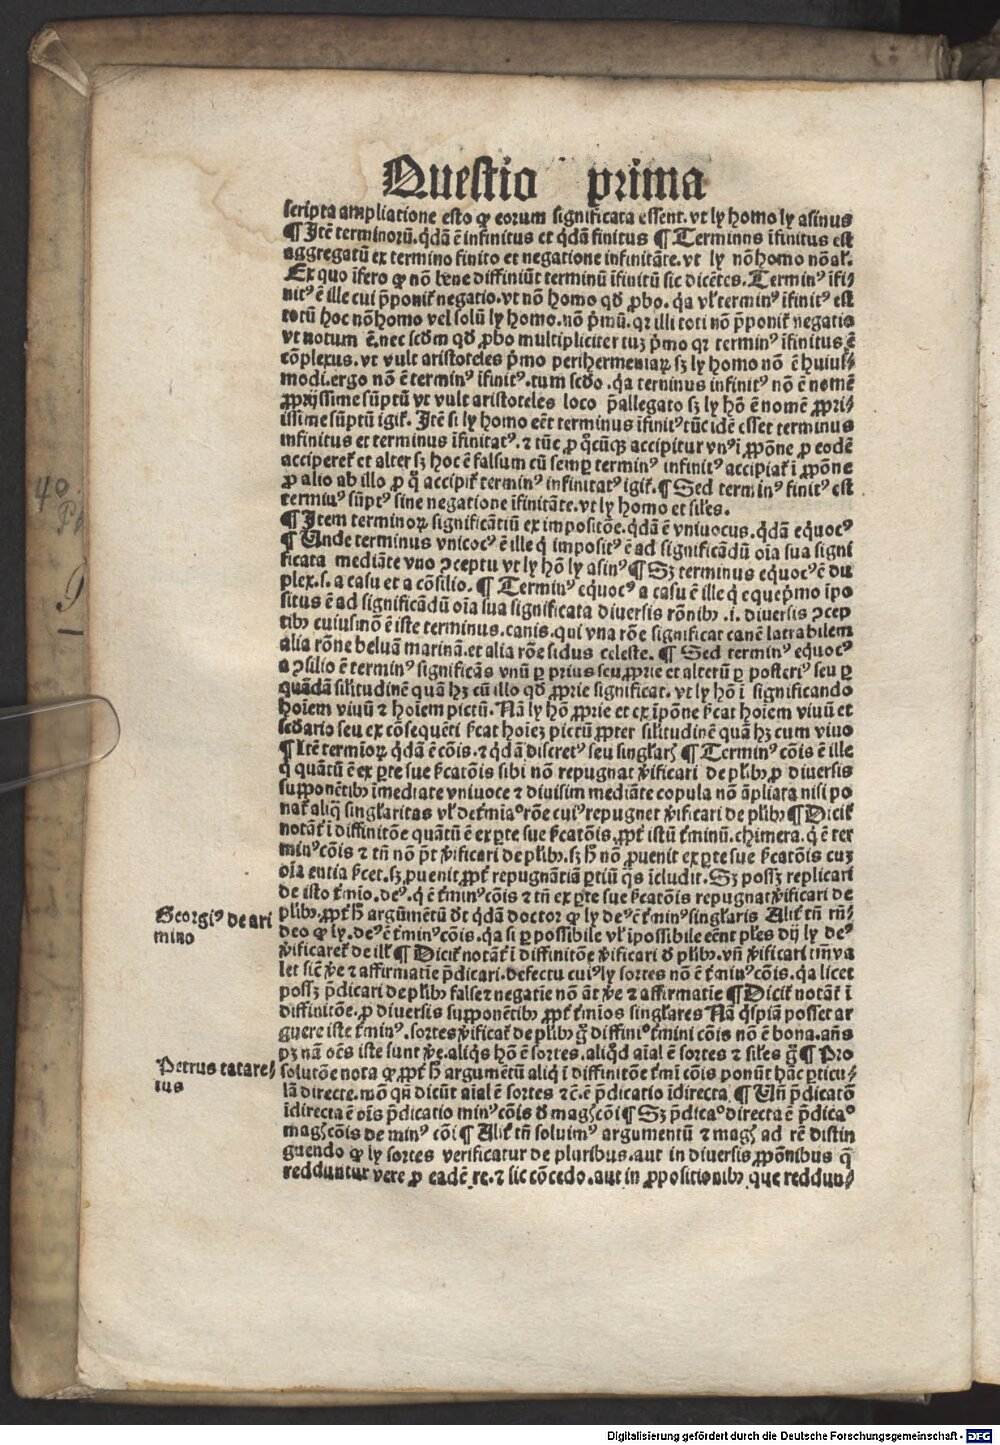 Questio prima
scripta ampliatione esto ꝙ eorum significata essent. vt ly homo ly asinus
¶ Itē terminorū. q̇dā ē infinitus et q̇dā finitus ¶ Terminus īfinitus est
aggregatū ex termino finito et negatione infinitāte. vt ly nō homo nō al̕.
Ex quo īfero ꝙ nō bene diffiniūt terminū īfinitū sic dicētes. Terminꝰ īfi⸗
nitꝰ ē ille cui p̄ponit̕ negatio. vt nō homo qd̕ ꝓbo. q̇a vl̕ terminꝰ īfinitꝰ est
totū hoc nō homo vel solū ly homo. nō p̄mū. qꝛ illi toti nō p̄ponit̕ negatio
vt notum ē. nec scd̕m qd̕ ꝓbo multipliciter tuꝫ p̄mo qꝛ terminꝰ īfinitus ē
cōplexus. vt vult aristoteles p̄mo perihermeniaꝝ sꝫ ly homo nō ē huius⸗
modi. ergo nō ē terminꝰ īfinitꝰ. tum scd̕o. q̇a terminus infinitꝰ nō ē nomē
ꝓprijssime sūptū vt vult aristoteles loco p̄allegato sꝫ ly hō ē nomē ꝓpri⸗
issime sūptū igit̕. Itē si ly homo eēt terminus īfinitꝰ tūc idē esset terminus
infinitus et terminus īfinitatꝰ. ⁊ tūc ꝓ q̇cūqꝫ accipitur vnꝰ ī ꝓpōne ꝓ eodē
acciperet̕ et alter sꝫ hoc ē falsum cū semꝑ terminꝰ infinitꝰ accipiat̕ ī ꝓpōne
ꝓ alio ab illo ꝓ q̊ accipit̕ terminꝰ infinitatꝰ igit̕. ¶ Sed terminꝰ finitꝰ est
terminꝰ sūptꝰ sine negatione īfinitāte. vt ly homo et siles.
¶ Item terminoꝝ significātiū ex impositōe. q̇dā ē vniuocus. q̇dā equocꝰ
¶ Unde terminus vnicocꝰ ē ille q̇ impositꝰ ē ad significādū oīa sua signi
ficata mediāte vno ꝯceptu vt ly hō ly asinꝰ ¶ Sꝫ terminus equocꝰ ē du
plex. s. a casu et a cōsilio. ¶ Terminꝰ equocꝰ a casu ē ille q̇ eque p̄mo īpo
situs ē ad significādū oīa sua significata diuersis rōnibꝫ .i. diuersis ꝯcep
tibꝫ cuiusmō ē iste terminus. canis. qui vna rōe significat canē latrabilem
alia rōne beluā marinā. et alia rōe sidus celeste. ¶ Sed terminꝰ equocꝰ
a ꝯsilio ē terminꝰ significās vnū ꝑ prius seu ꝓprie et alterū ꝑ posteriꝰ seu ꝑ
quādā silitudinē quā hꝫ cū illo qd̕ ꝓprie significat. vt ly hō ī significando
hoīem viuū ⁊ hoīem pictū. Nā ly hō ꝓprie et ex īpōne s̕cat hoīem viuū et
scd̕ario seu ex cōsequēti s̕cat hoieꝫ pictū ꝓpter silitudinē quā hꝫ cum viuo
¶ Itē termioꝝ q̇dā ē cōis. ⁊ q̇dā discretꝰ seu singl̕aris ¶ Terminꝰ cōis ē ille
q̇ quātū ē ex ꝑte sue s̕catōis sibi nō repugnat v̕ificari de pl̕ibꝫ ꝓ diuersis
supponētibꝫ īmediate vniuoce ⁊ diuisim mediāte copula nō āpliata nisi po
nat̕ aliq̇ singl̕aritas vl̕ det̕miatio rōe cuiꝰ repugnet v̕ificari de pl̕ibꝫ ¶ Dicit̕
notāt̕ ī diffinitōe quātū ē ex ꝑte sue s̕catōis. ꝓpt̕ istū t̕minū. chimera. q̇ ē ter
minꝰ cōis ⁊ tn̄ nō pōt v̕ificari de pl̕ibꝫ. sꝫ h̕ nō ꝓuenit ex ꝑte sue s̕catōis cuꝫ
oīa entia s̕cet. sꝫ ꝓuenit ꝓpt̕ repugnātiā ꝑtiū q̄s īcludit. Sꝫ possꝫ replicari
de isto t̕mīo. deꝰ. q̇ ē t̕minꝰ cōis ⁊ tn̄ ex ꝑte sue s̕catōis repugnat v̕ificari de
Georgiꝰ de ari
mino
pl̕ibꝫ. ꝓpt̕ h̕ argumētū d̕t q̇dā doctor ꝙ ly deꝰ ē t̕minꝰ singl̕aris Alit̕ tn̄ rn̄⸗
deo ꝙ ly. deꝰ ē t̕minꝰ cōis. q̇a si ꝑ possibile vl̕ īpossibile eēnt pl̕es dij ly deꝰ
v̕ificaret̕ de ill̕ ¶ Dicit̕ notāt̕ ī diffinitōe v̕ificari d̕ pl̕ibꝫ. vn̄ v̕ificari tm̄ va
let sic̄ v̕e ⁊ affirmatīe p̄dicari. defectu cuiꝰ ly sortes nō ē t̕minꝰ cōis. q̇a licet
possꝫ p̄dicari de pl̕ibꝫ false ⁊ negatīe nō āt v̕e ⁊ affirmatīe ¶ Dicit̕ notāt̕ ī
diffinitōe. ꝓ diuersis supponētibꝫ ꝓpt̕ t̕mīos singl̕ares Nā q̇spiā posset ar
guere iste t̕minꝰ. sortes v̕ificat̕ de pl̕ibꝫ g̊ diffinitio t̕mini cōis nō ē bona. an̄s
pꝫ nā oēs iste sunt v̕e. aliq̇s hō ē sortes. aliq̇d aīal ē sortes ⁊ siles g̊ ¶ Pro
Petrus tatare⸗
tus
solutōe nota ꝙ ꝓpt̕ h̕ argumētū aliq̇ ī diffinitōe t̕mī cōis ponūt hāc ꝑticu⸗
lā directe. mō qn̄ dicūt aīal ē sortes ⁊ c̄. ē p̄dicatio īdirecta ¶ Un̄ p̄dicatō
īdirecta ē oīs p̄dicatio minꝰ cōis d̕ magis cōi ¶ Sꝫ p̄dicatio directa ē p̄dicatio
magis cōis de minꝰ cōi ¶ Alit̕ tn̄ soluimꝰ argumentū ⁊ magis ad rē distin
guendo ꝙ ly sortes verificatur de pluribus. aut in diuersis ꝓpōnibus q̄
redduntur vere ꝓ eadē re. ⁊ sic cōcedo. aut in ꝓpositionibꝫ que reddun⸗
Digitalisierung gefördert durch die Deutsche Forschungsgemeinschaft - DFG